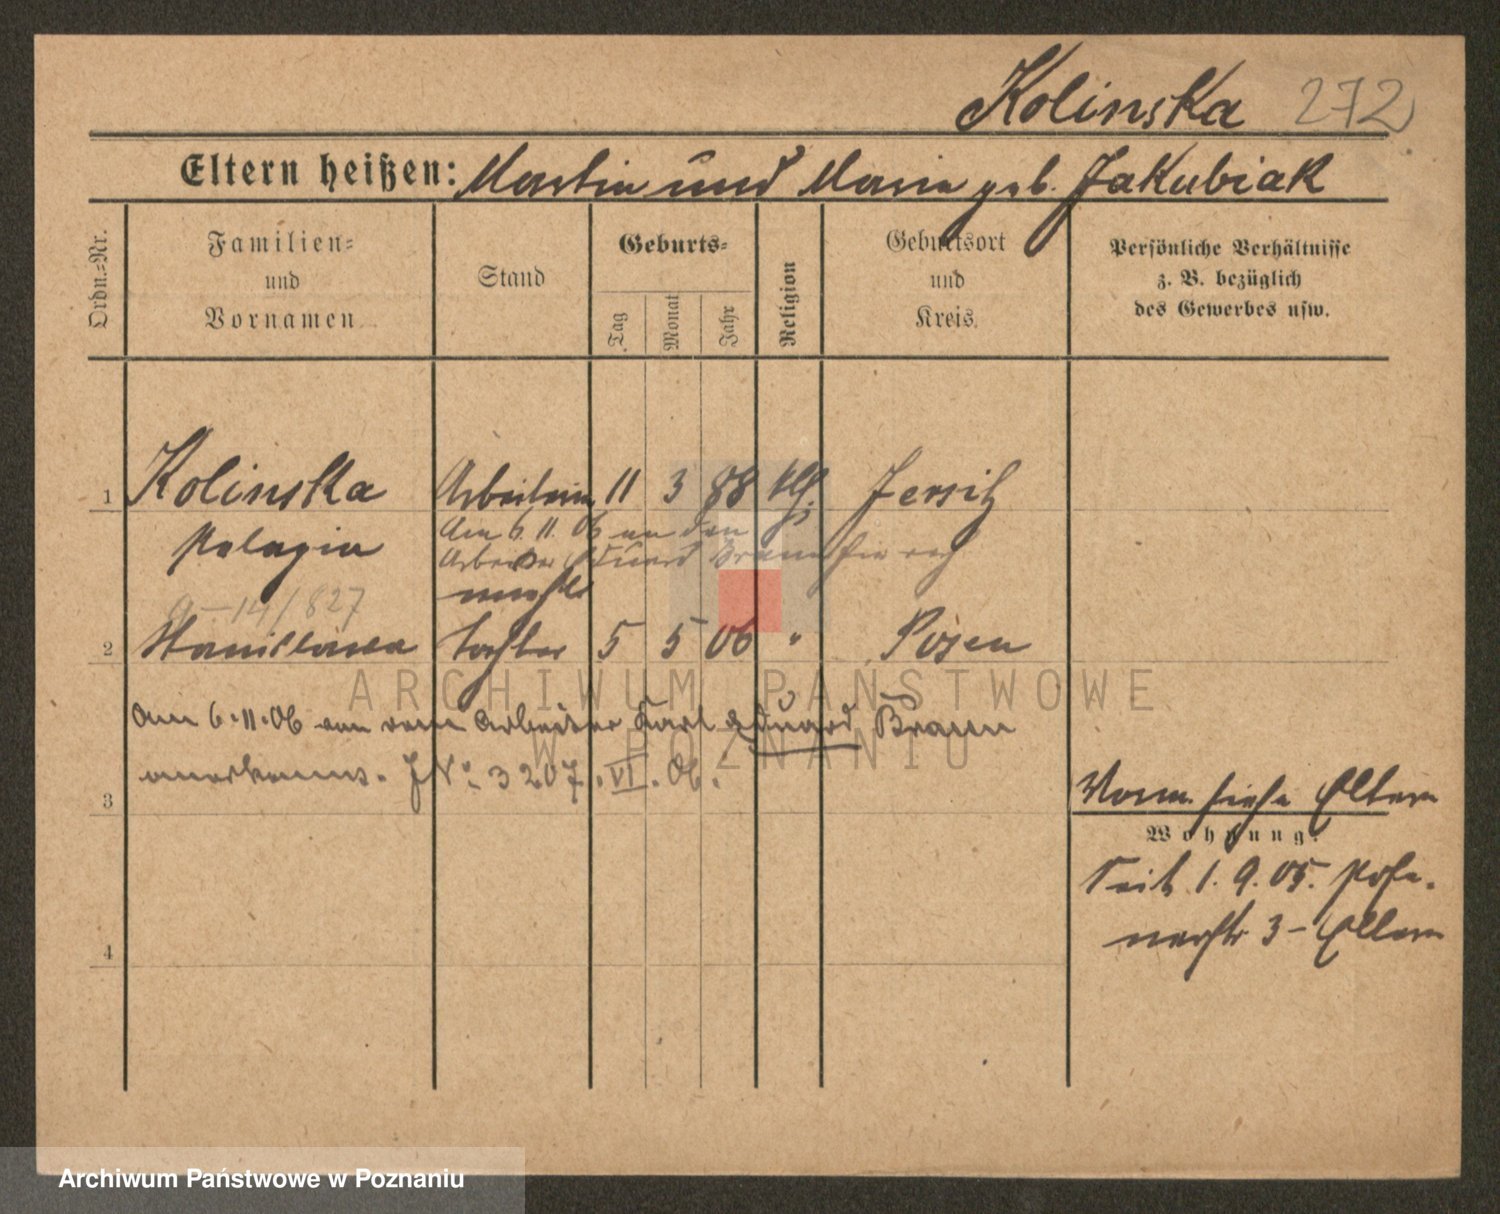 Kolinska 272
Eltern heißen: Martin und Maria geb. Jakubiak
Ordn.-Nr.
Familien-
und
Vornamen
Stand
Geburts-
Tag
Monat
Jahr
Religion
Geburtsort
und
Kreis.
Persönliche Verhältnisse
z. B. bezüglich
des Gewerbes usw.
1 Kolinska Arbeiterin 11 3 88 kth. Jersitz
Pelagia
Am 6.11.06 an den
Arbeiter Eduard Braun hier
14/827
2 Stanislawa Tochter 5 5 06 " Posen
Am 6.11.06 von dem Arbeiter Karl Eduard Braun
anerkannt. J N° 3207. VI. 06.
3
4
Vorm. siehe Eltern
Wohnung:
Seit 1.9.05.
3 - Eltern
ARCHIWUM PAŃSTWOWE
W POZNANIU
Archiwum Państwowe w Poznaniu